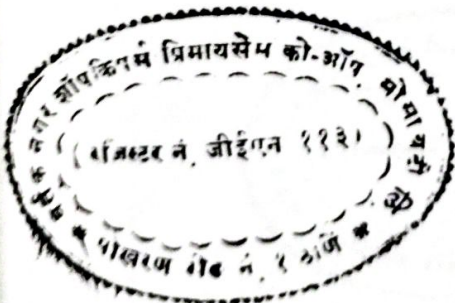 नगर शॉपकिपर्स प्रिमायसेस को-ऑप सोसायटी लि
( रजिस्टर नं. जीईएन ११३)
* पोखरण रोड नं. १ ठाणे *